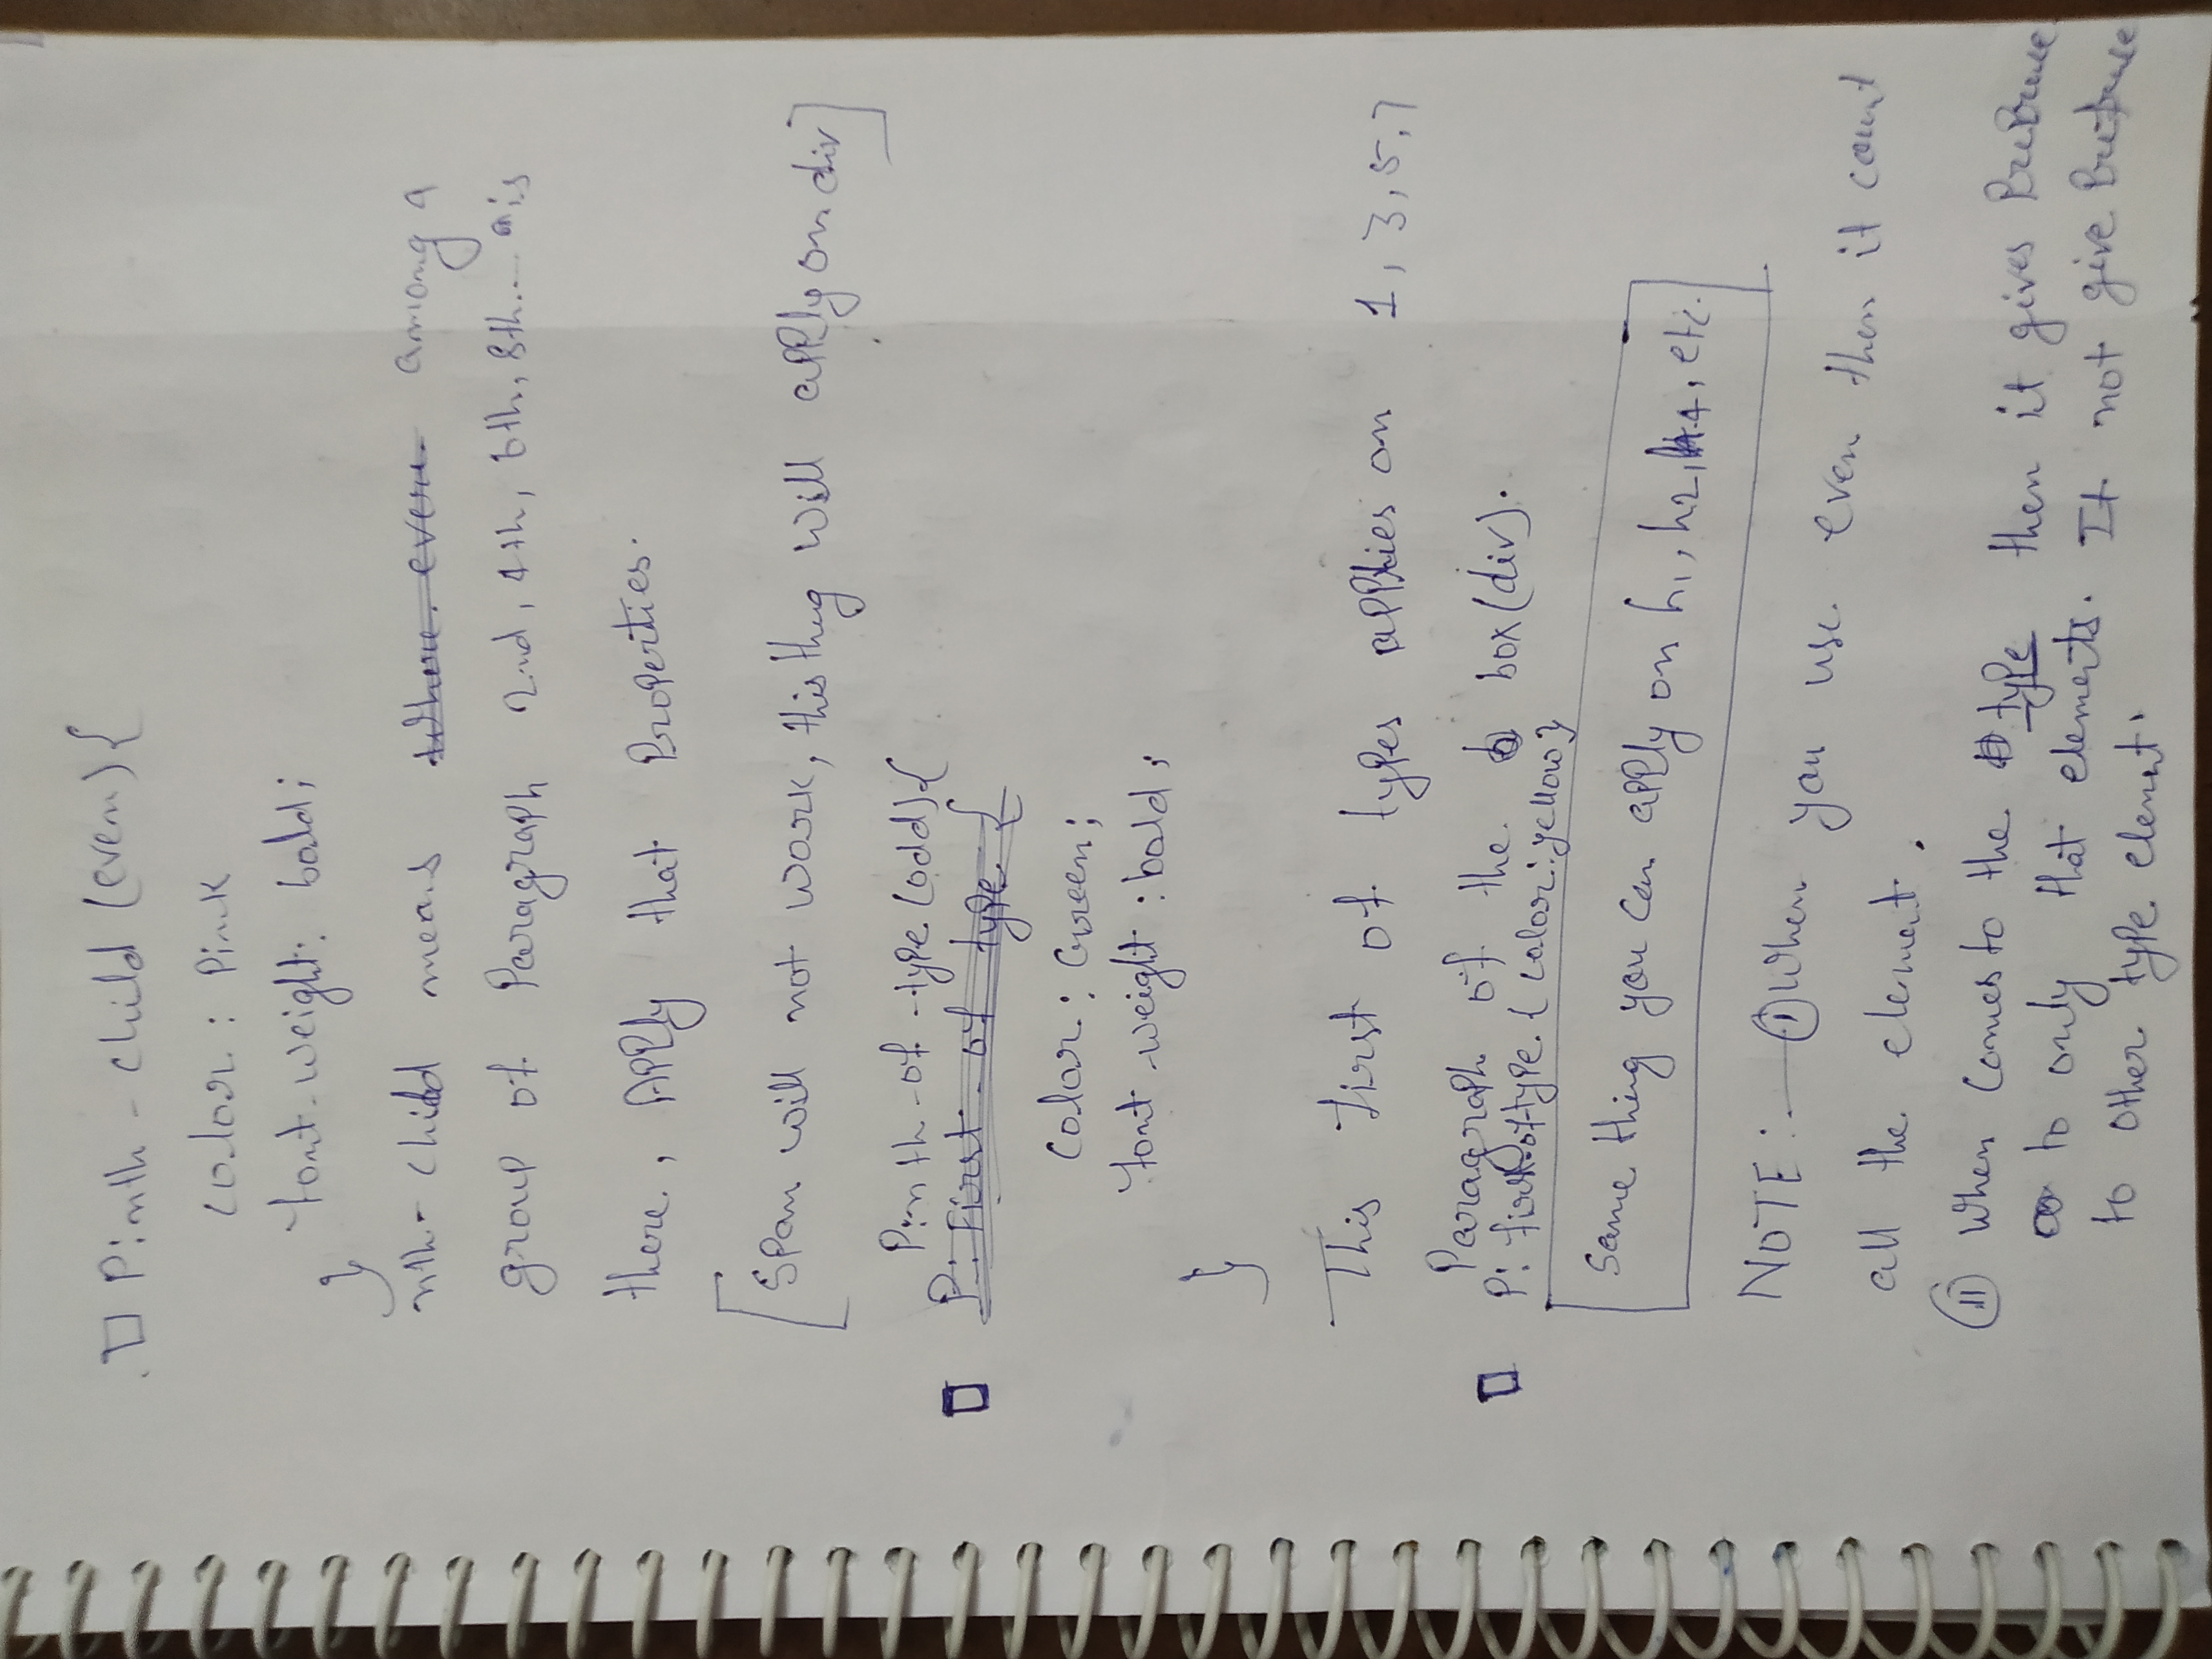 P:nth-child (even) {
color: Pink
font-weight: bold;
}
nth-child means where even among a
group of Paragraph 2nd, 4th, 6th, 8th.... is
there, APPly that Properties.
[Span will not work, this thing will apply on div]
P:nth-of-type (odd) {
P: First-of type {
Color: Green;
font-weight: bold;
}
This first of types applies on 1, 3, 5, 7
Paragraph of the box (div).
P: first-of-type { color: yellow }
Same thing you can apply on h1, h2, h4, etc.
NOTE: (i) When you use even then it count
all the element.
(ii) When Comes to the type then it gives
to only that elements. It not give
to other type element.